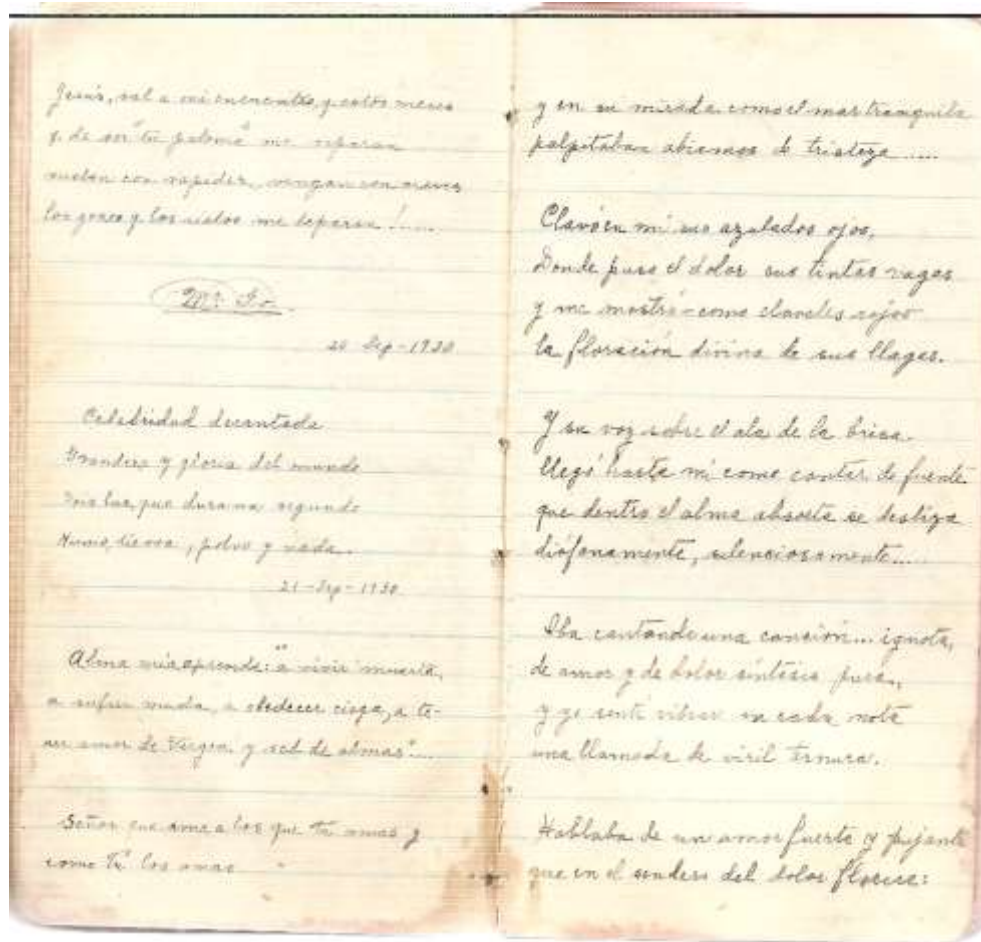 Jesús, sal a mi encuentro, y estos meses
q. de ser "tu paloma" me separan
vuelen con rapidez, vengan con creces
los goces q los cielos me deparan!.....
20 Sep-1930
Celebridad decantada
Grandeza y gloria del mundo
luz que dura un segundo
Humo, tierra, polvo y nada.
21-Sep-1930
Alma mía aprende: "a vivir muerta,
a sufrir muda, a obedecer ciega, a te-
ner amor de Virgen y sed de almas"....
Señor que ame a los que tú amas y
como Tú los amas
y en su mirada como el mar tranquila
palpitaban abismos de tristeza.....
Clavó en mí sus azulados ojos,
Donde puso el dolor sus tintas vagas
y me mostró-como claveles rojos
la floración divina de sus llagas.
Y su voz sobre el ala de la brisa
llegó hasta mí como cantar de fuente
que dentro el alma absorta se desliza
diáfanamente, silenciosamente.....
Iba cantando una canción... ignota,
de amor y de dolor síntesis pura,
y yo sentí vibrar en cada nota
una llamada de viril ternura.
Hablaba de un amor fuerte y pujante
que en el sendero del dolor florece: